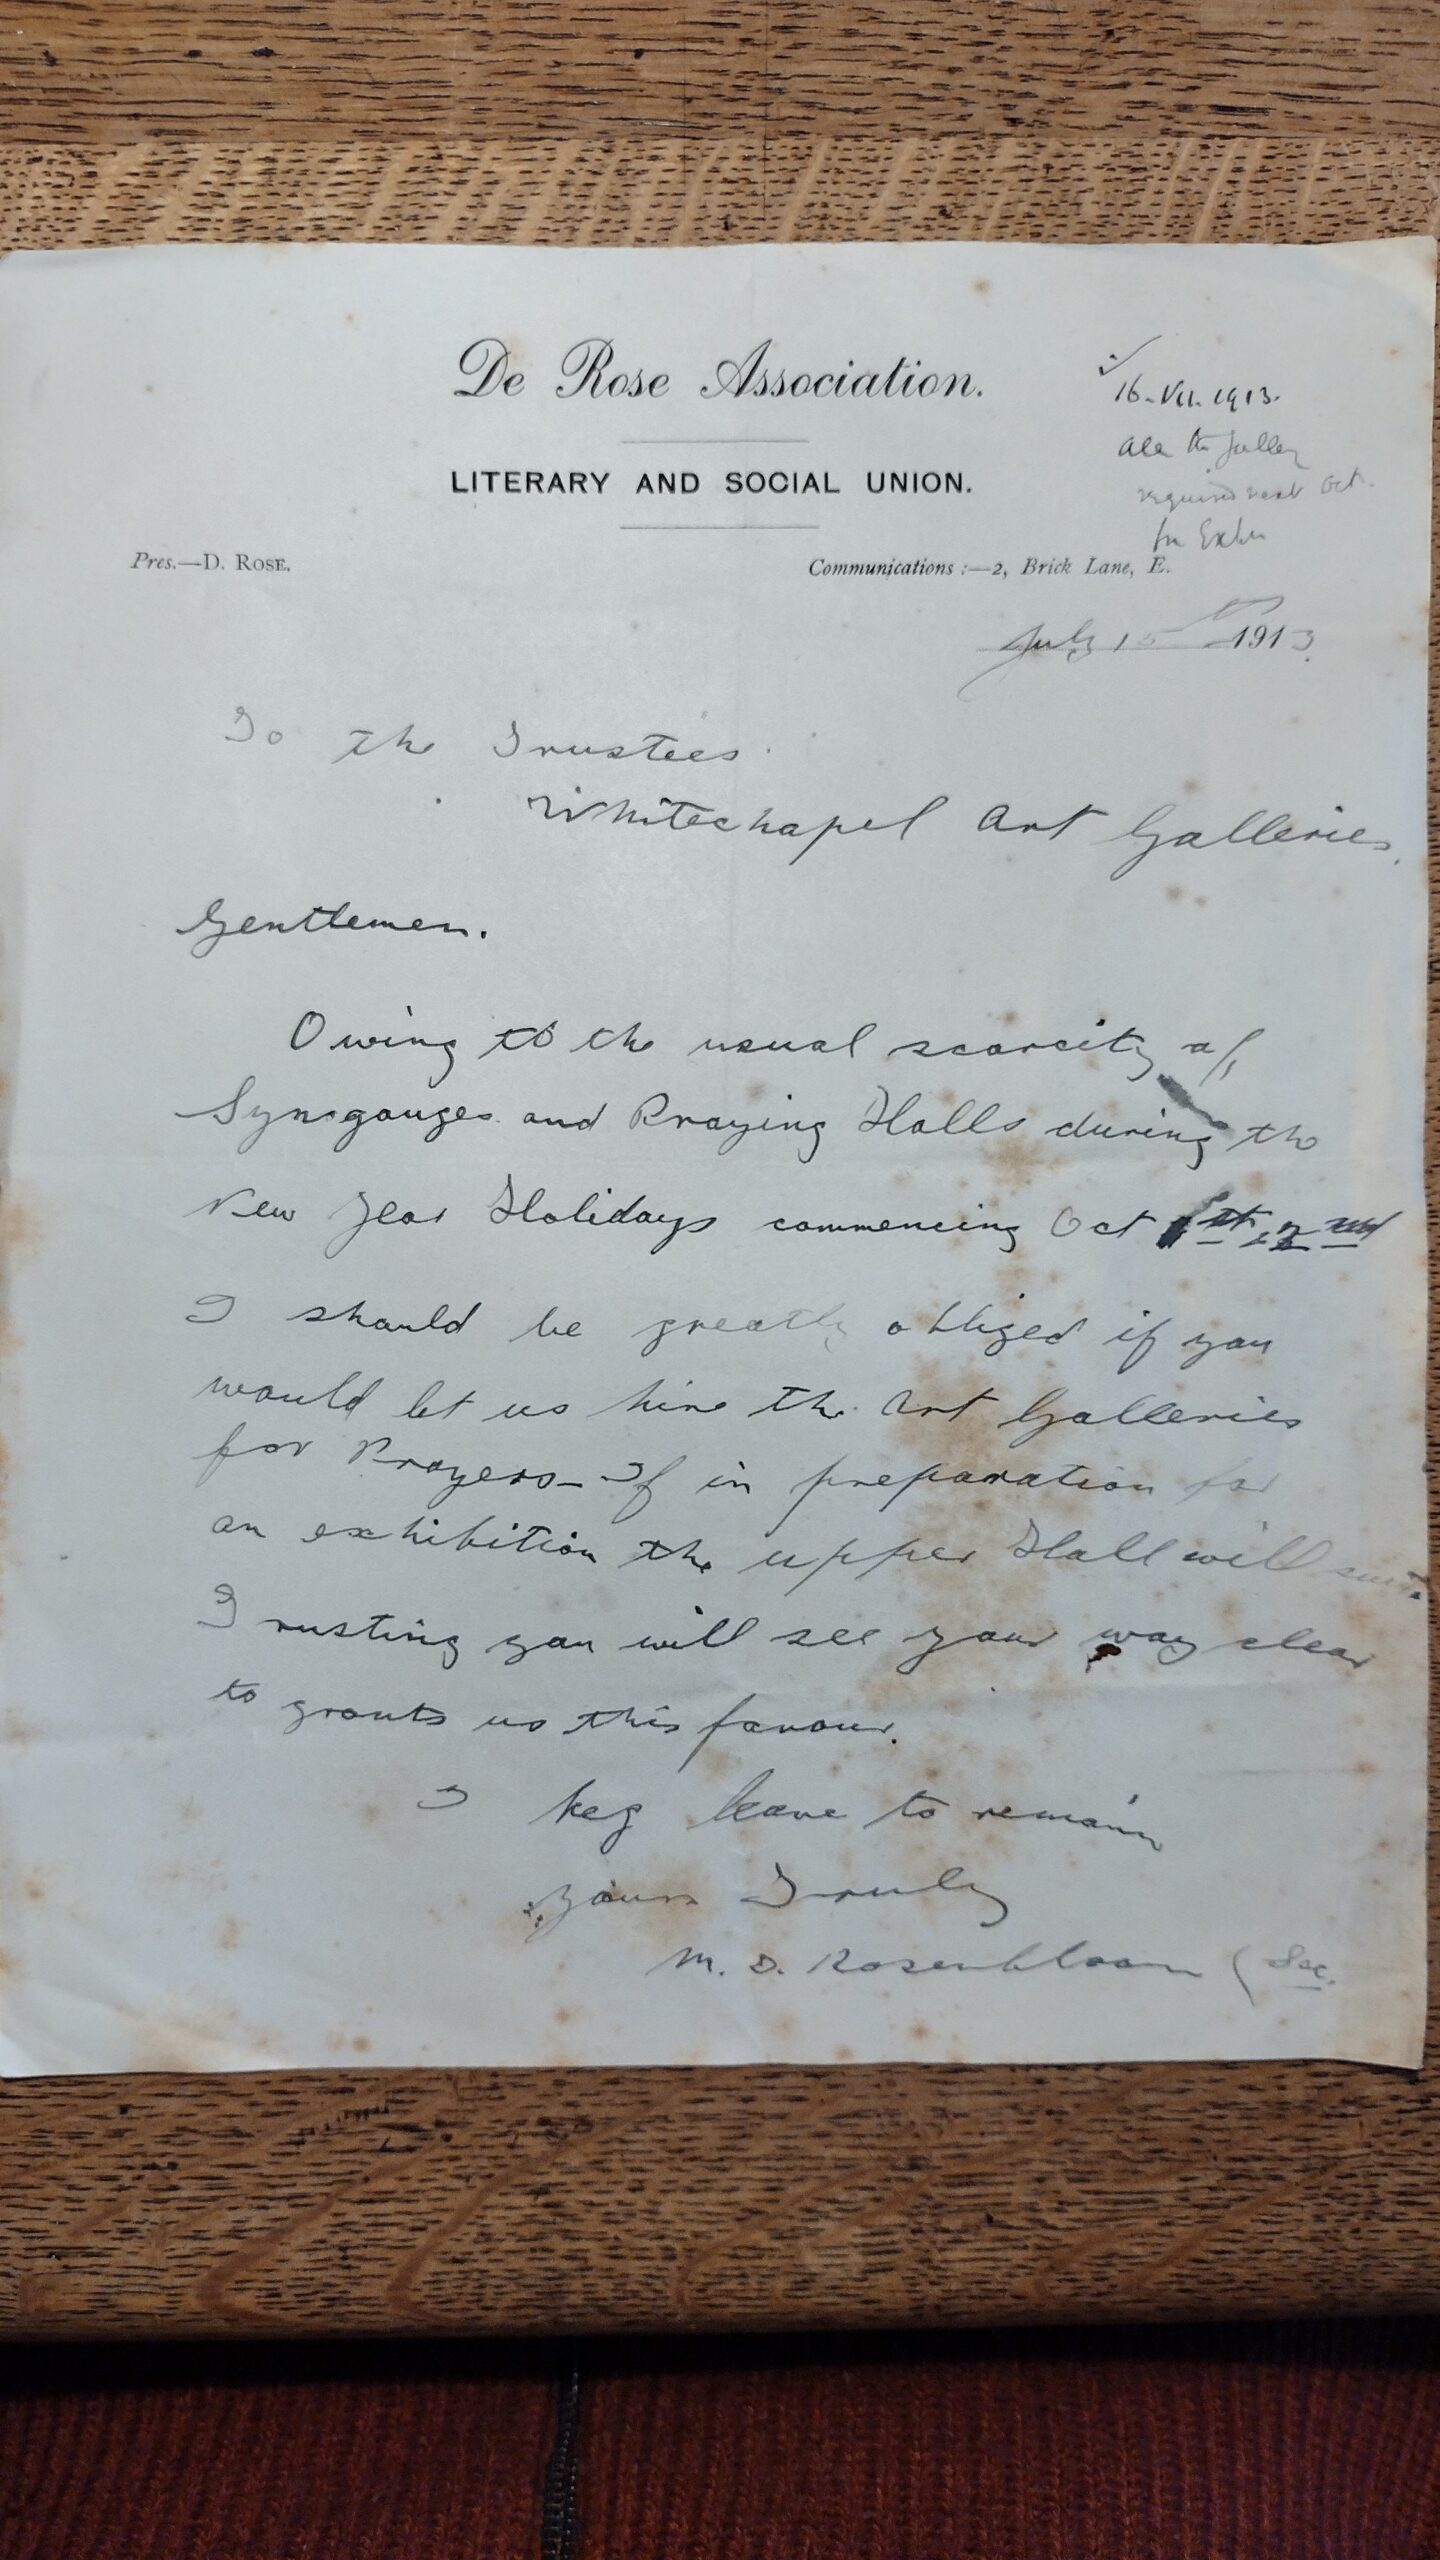 De Rose Association.
16.VII.1913.
All the Gallery
required next Oct.
for Exhn
LITERARY AND SOCIAL UNION.
Pres.—D. ROSE.
Communications :—2, Brick Lane, E.
July 15th 1913.
To the Trustees
Whitechapel Art Galleries.
Gentlemen.
Owing to the usual scarcity of
Synagouges and Praying Halls during the
New Year Holidays commencing Oct 1st, 2nd
I should be greatly obliged if you
would let us hire the Art Galleries
for Prayers – If in preparation for
an exhibition the upper Hall will suit.
Trusting you will see your way clear
to grants us this favour.
I beg leave to remain
Yours Truly
M. D. Rosenbloom (Sec.